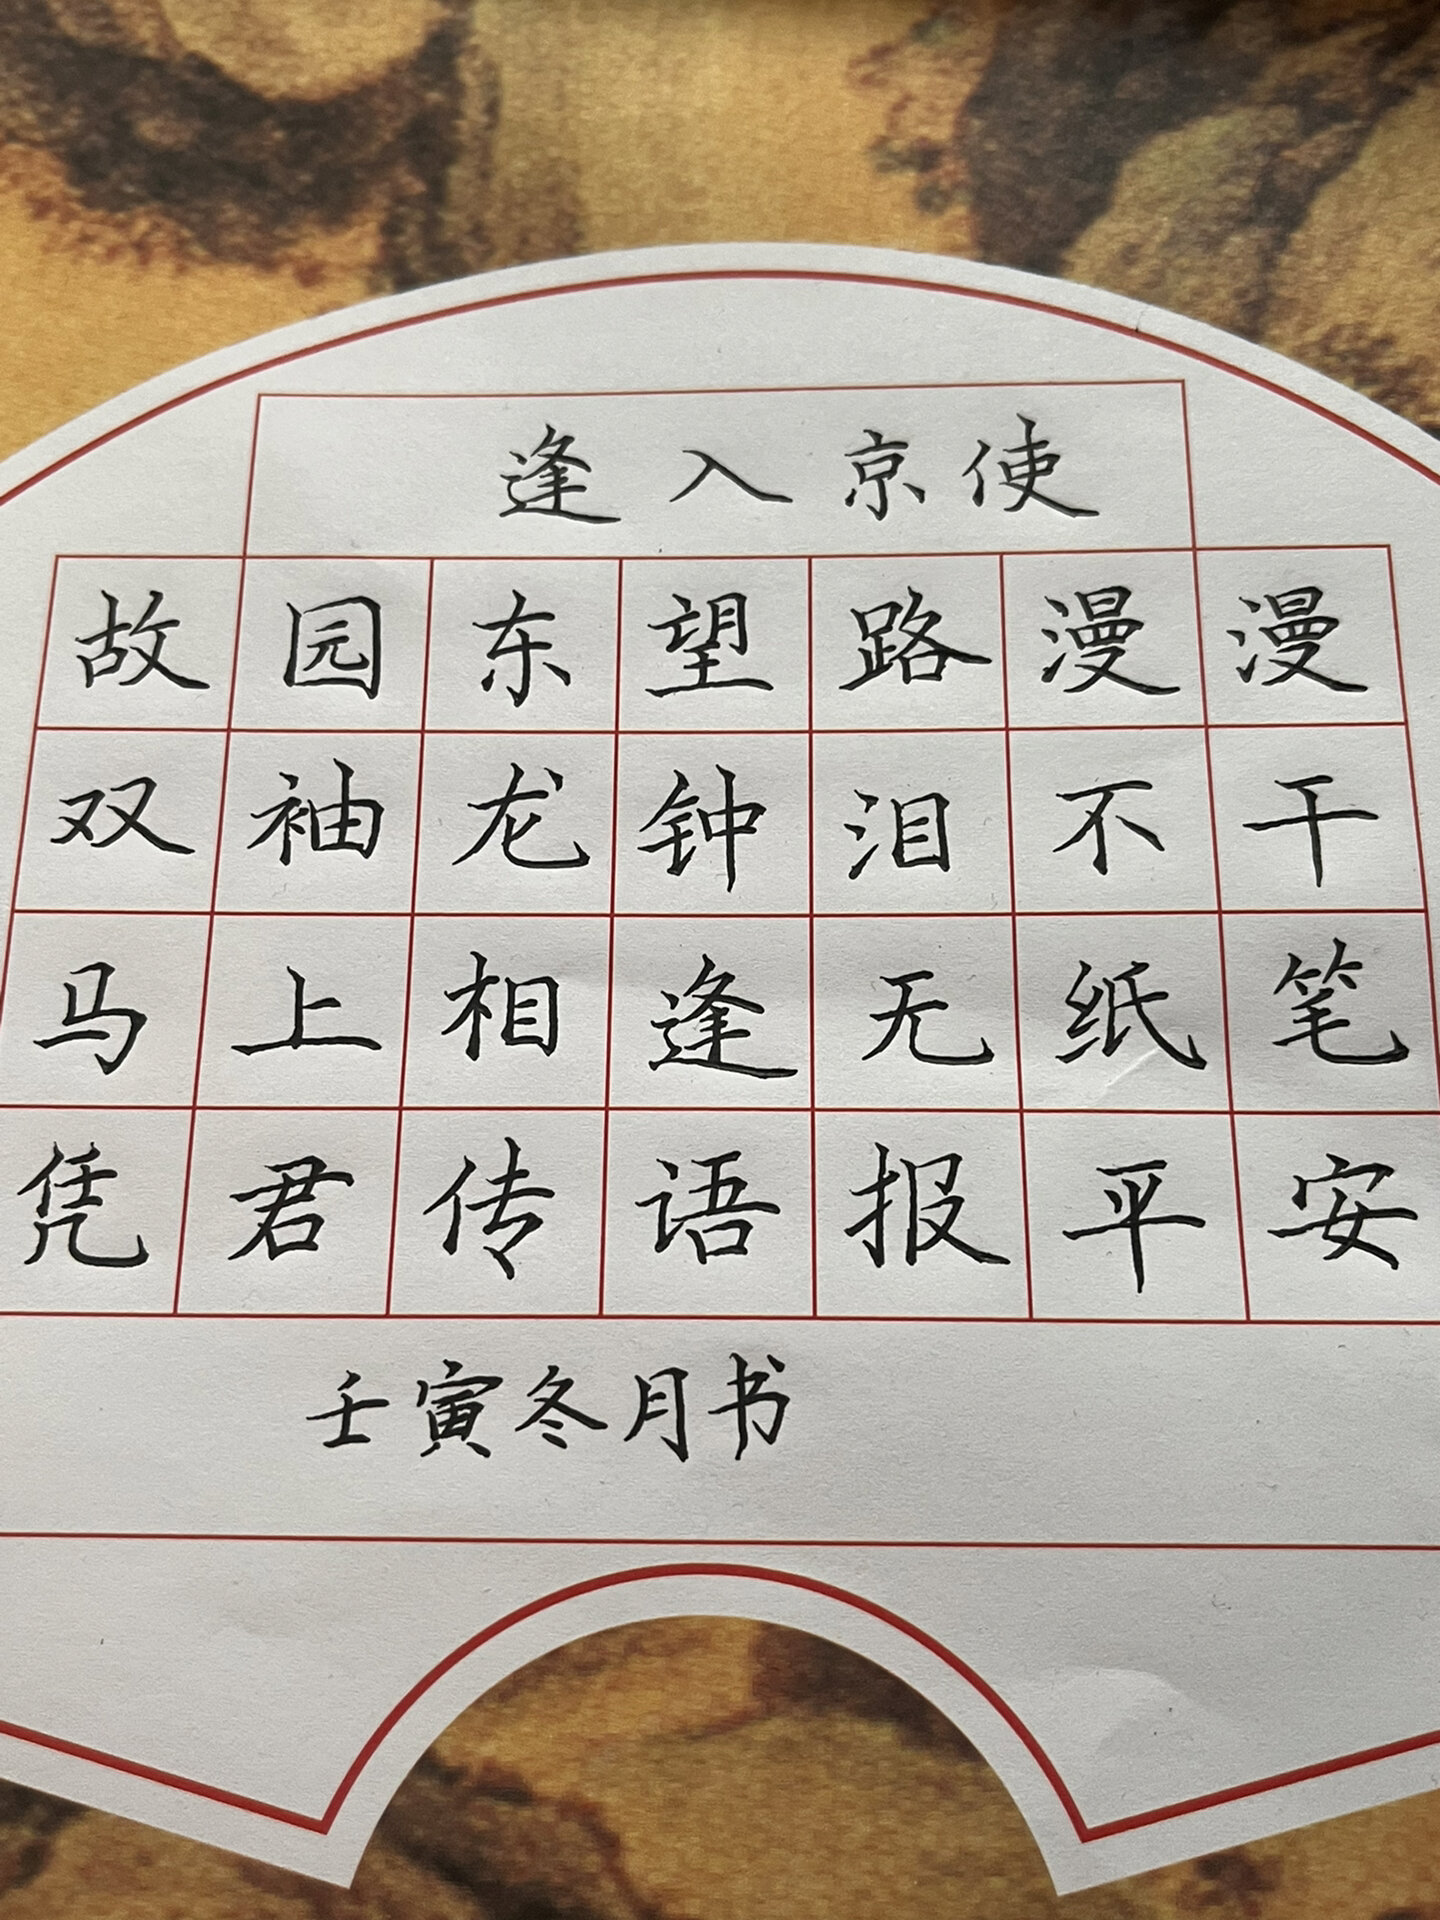 逢入京使
故园东望路漫漫
双袖龙钟泪不干
马上相逢无纸笔
凭君传语报平安
壬寅冬月书